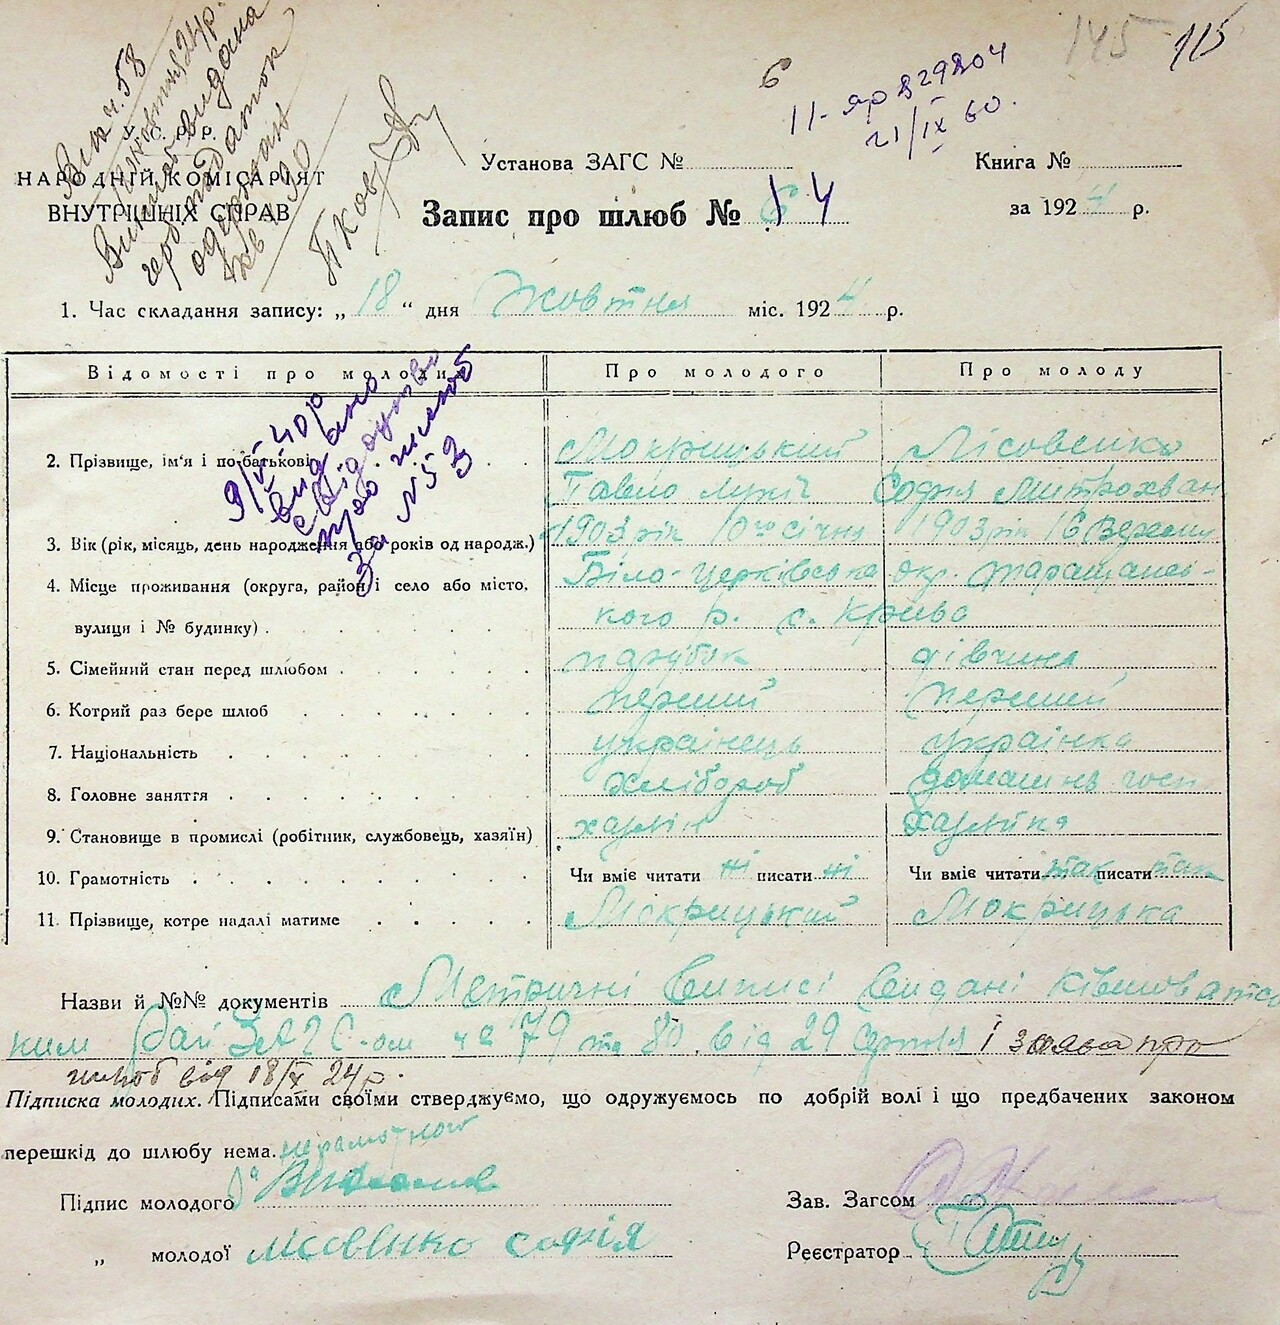 145 115
6
11-яр 829804
21/IX 60.
Вип ч. 58
видана
податок
одержан
У. С. Р. Р.
НАРОДНІЙ КОМІСАРІЯТ
ВНУТРІШНІХ СПРАВ
Установа ЗАГС №
Книга №
Запис про шлюб № 14
за 1924 р.
1. Час складання запису: „ 18 “ дня Жовтня міс. 1924 р.
Відомості про молодих
Про молодого
Про молоду
9/VI 40 р
видано
свідоцтво
про шлюб
За № 53
2. Прізвище, ім'я і по-батькові
Мокрицький Лісовенко
Павло Лукіч Софія Митрохван
3. Вік (рік, місяць, день народження або років од народж.) 1903 рік 10го січня 1903 рік 16 Вересня
4. Місце проживання (округа, район і село або місто, Біло-Церківська окр. Таращансь-
вулиця і № будинку) . кого р. с. Криво
5. Сімейний стан перед шлюбом парубок дівчина
6. Котрий раз бере шлюб перший перший
7. Національність українець українка
8. Головне заняття хлібороб домашнь госп
9. Становище в промислі (робітник, службовець, хазяїн) хазяін Хазяйка
10. Грамотність Чи вміє читати ні писати ні Чи вміє читати так писати так
11. Прізвище, котре надалі матиме Мокрицький Мокрицька
Назви й №№ документів Метричні Виписі Видані Ківшоватсь
ким Рай ЗАГС-ом ч ч 79 та 80 від 29 Серпня і заява про
шлюб від 18/X 24 р.
Підписка молодих. Підписами своїми стверджуємо, що одружуємось по добрій волі і що предбачених законом
перешкід до шлюбу нема. неграмотной
Підпис молодого за
Зав. Загсом
„ молодої Лісовенко Софія
Реєстратор